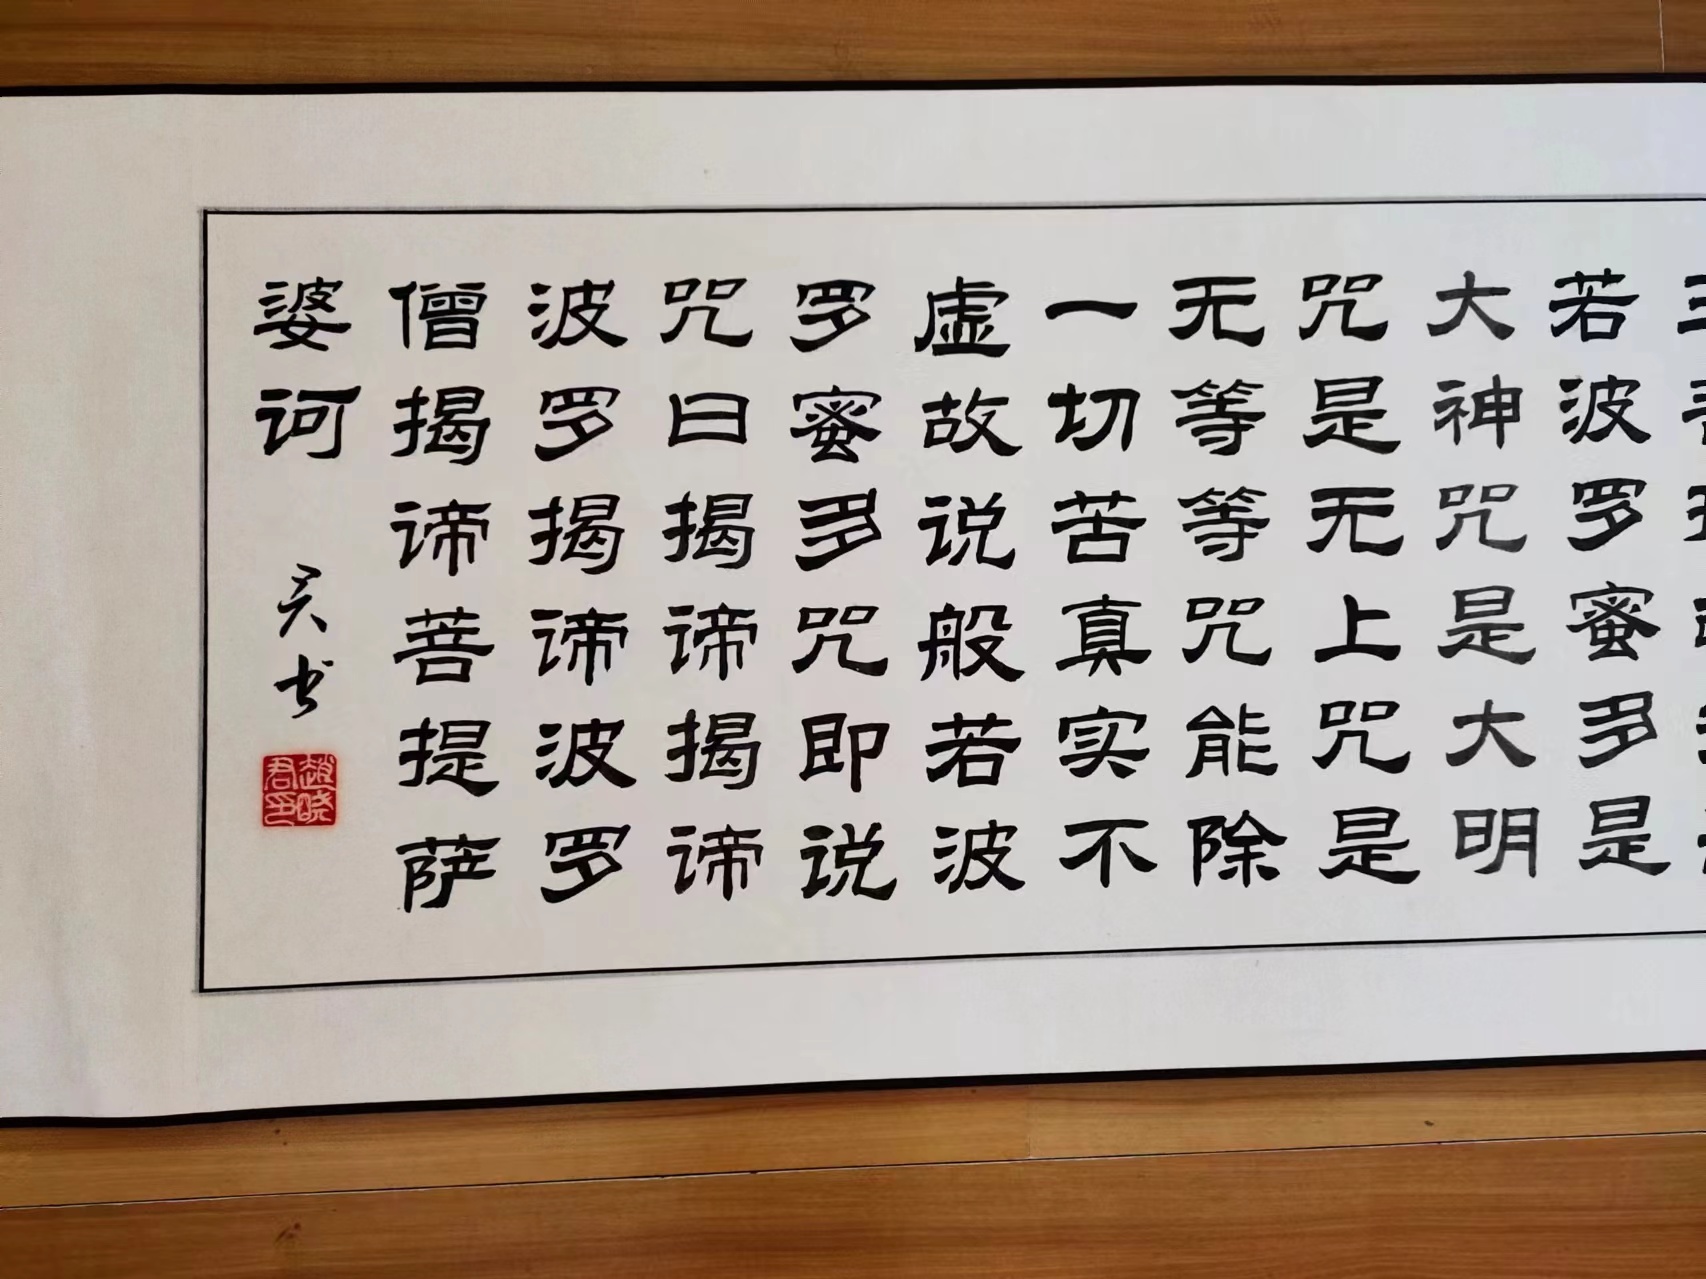 若波罗蜜多是
大神咒是大明
咒是无上咒是
无等等咒能除
一切苦真实不
虚故说般若波
罗蜜多咒即说
咒曰揭谛揭谛
波罗揭谛波罗
僧揭谛菩提萨
婆诃
书
趙晓
君印